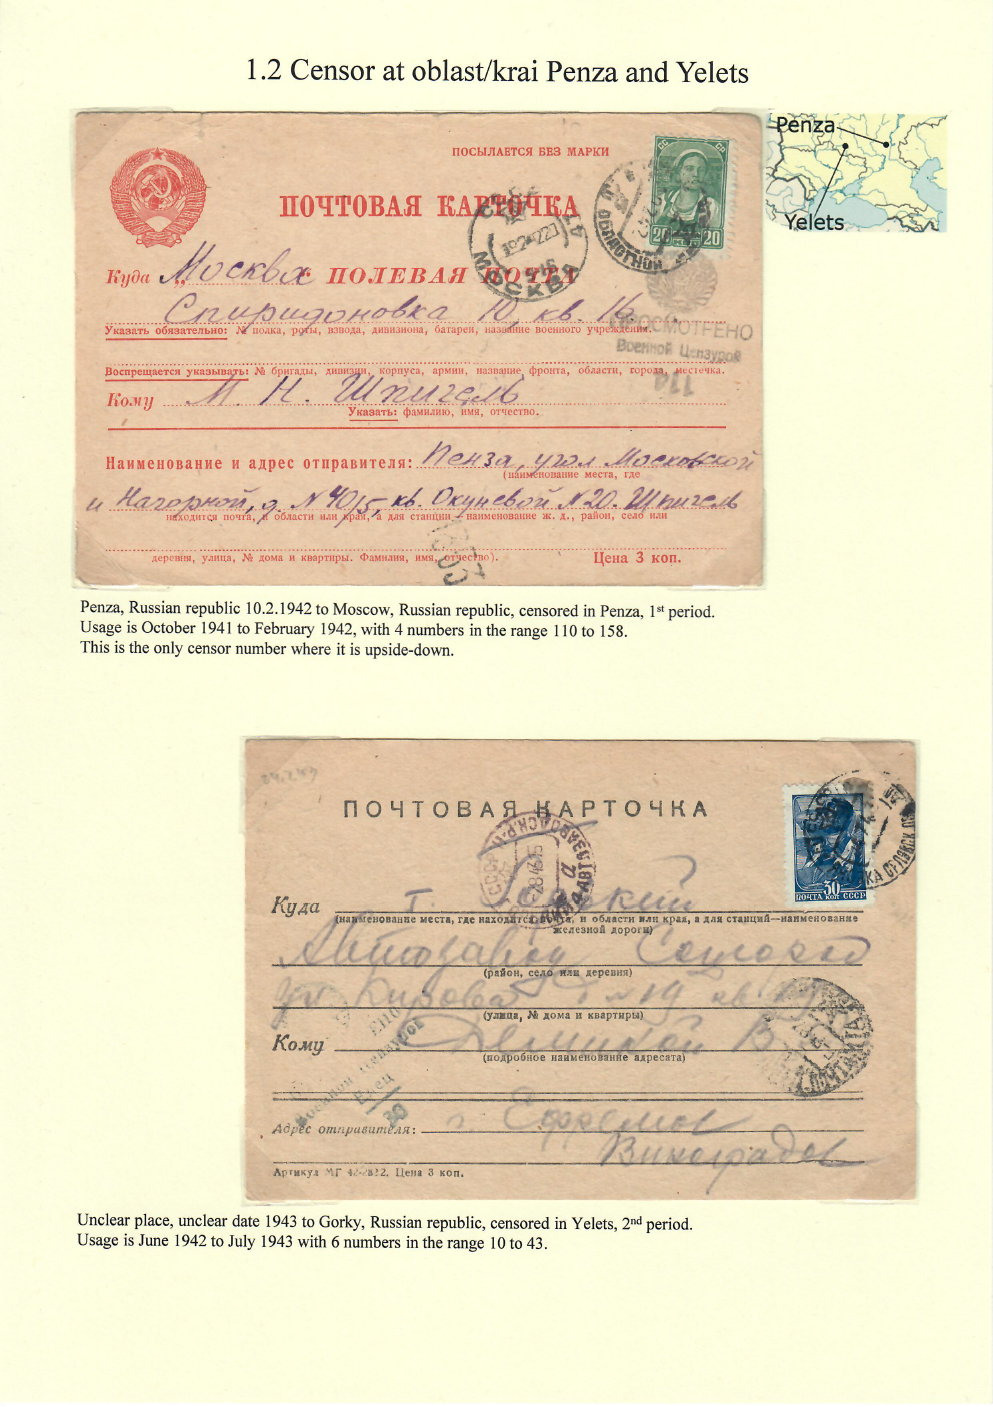 1.2 Censor at oblast/krai Penza and Yelets
Penza
Yelets
ПОСЫЛАЕТСЯ БЕЗ МАРКИ
ПОЧТОВАЯ КАРТОЧКА
20 20
СССР
МОСКВА
ОБЛАСТНОЙ
Куда Москва ПОЛЕВАЯ ПОЧТА
Спиридоновка 10, кв. 16.
ПРОСМОТРЕНО
Военной Цензурой
Указать обязательно: № полка, роты, взвода, дивизиона, батареи, название военного учреждения.
Воспрещается указывать: № бригады, дивизии, корпуса, армии, название, фронта, области, города, местечка.
Кому М. Н. Шпигель
Указать: фамилию, имя, отчество.
Наименование и адрес отправителя: Пенза, угол Московской
(наименование места, где
и Нагорной, д. N 40/5, кв. Окуневой N 20. Шпигель
находится почта, и области или края, а для станции – наименование ж. д., район, село или
деревня, улица, № дома и квартиры. Фамилия, имя, отчество).
Цена 3 коп.
Penza, Russian republic 10.2.1942 to Moscow, Russian republic, censored in Penza, 1st period.
Usage is October 1941 to February 1942, with 4 numbers in the range 110 to 158.
This is the only censor number where it is upside-down.
ПОЧТОВАЯ КАРТОЧКА
30
ПОЧТА КОП СССР
Куда г. Горький
(наименование места, где находится почта, и области или края, а для станций—наименование
железной дороги)
Автозавод
(район, село или деревня)
ул Кирова
(улица, № дома и квартиры)
Кому
(подробное наименование адресата)
Военной цензурой
Елец
30
Адрес отправителя: г. Ефремов
Виноградов
Цена 3 коп.
Unclear place, unclear date 1943 to Gorky, Russian republic, censored in Yelets, 2nd period.
Usage is June 1942 to July 1943 with 6 numbers in the range 10 to 43.